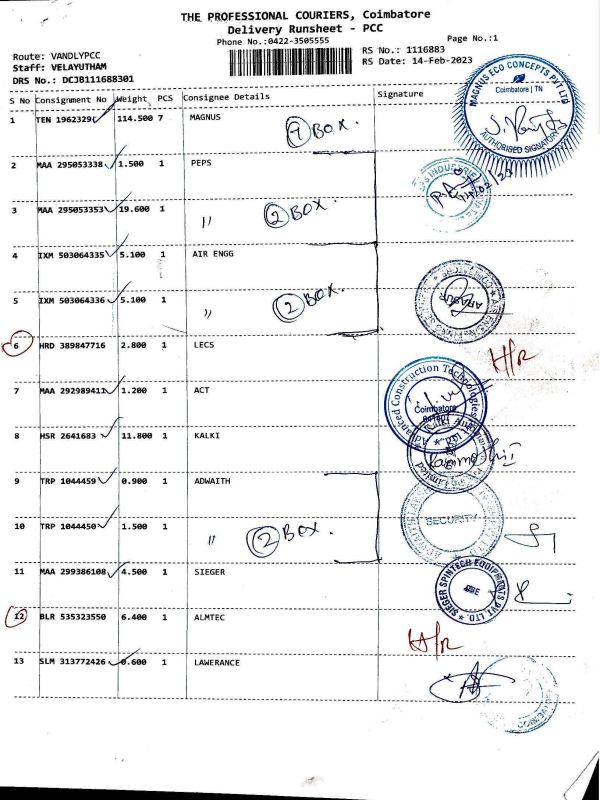 THE PROFESSIONAL COURIERS, Coimbatore
Delivery Runsheet - PCC
Phone No.:0422-3505555
Page No.:1
Route: VANDLYPCC
RS No.: 1116883
Staff: VELAYUTHAM
RS Date: 14-Feb-2023
DRS No.: DCJB111688301
S No Consignment No Weight PCS Consignee Details Signature
1 TEN 1962329 114.500 7 MAGNUS
7 BOX.
MAGNUS ECO CONCEPTS PVT LTD
Coimbatore | TN
AUTHORISED SIGNATORY
2 MAA 295053338 1.500 1 PEPS
3 MAA 295053353 19.600 1 〃
2 BOX.
4 IXM 503064335 5.100 1 AIR ENGG
5 IXM 503064336 5.100 1 〃
2 BOX.
6 HRD 389847716 2.800 1 LECS
H/R
7 MAA 292989411 1.200 1 ACT
Advanced Construction Technologies
Coimbatore
8 HSR 2641683 11.800 1 KALKI
9 TRP 1044459 0.900 1 ADWAITH
10 TRP 1044450 1.500 1 〃
2 BOX.
SECURITY
11 MAA 299386108 4.500 1 SIEGER
SIEGER SPINTECH EQUIPMENTS PVT. LTD.
12 BLR 535323550 6.400 1 ALMTEC
H/R
13 SLM 313772426 0.600 1 LAWERANCE